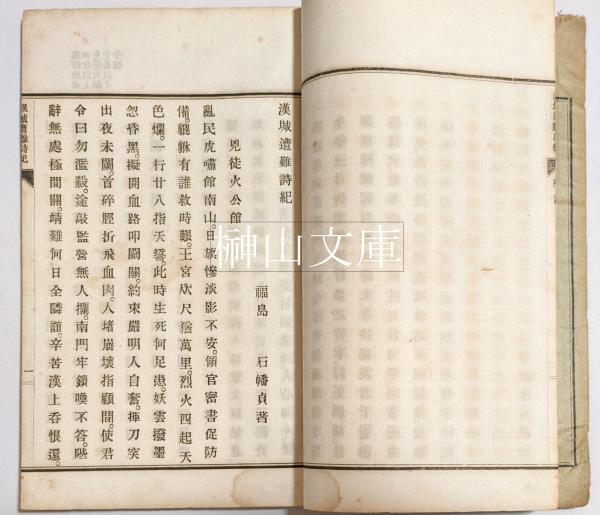 漢城遭難詩紀
福島 石幡貞著
兇徒火公館
亂民虎嘯館南山。日旗慘淡影不安。領官密書促防
備。貔貅有誰救時艱。王宮咫尺猶萬里。烈火四起天
色爛。一行廿八指天誓。此時生死何足患。妖雲撥墨
忽昏黑。擬開血路叩闘關。約束嚴明人自奮。揮刀突
出夜未闌。首碎脛折飛血肉。人堵崩壞指顧間。使君
令曰勿濫殺。途敲監營無人攔。南門牢鎖喚不答。陛
辭無處極間關。靖難何日全隣誼。辛苦漢上吞恨還。
漢城遭難詩紀
一
榊山文庫